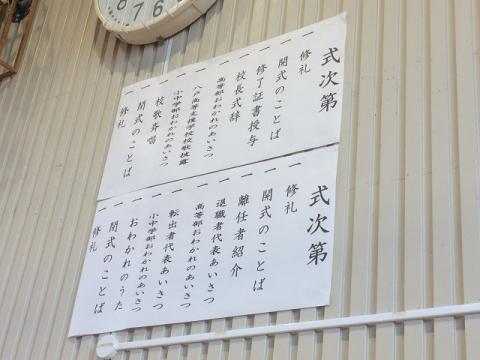 式次第
一 修礼
一 開式のことば
一 修了証書授与
一 校長式辞
一 高等部おわかれのあいさつ
一 八戸高等支援学校校歌披露
一 小中学部おわかれのあいさつ
一 校歌斉唱
一 閉式のことば
一 修礼
式次第
一 修礼
一 開式のことば
一 離任者紹介
一 退職者代表あいさつ
一 高等部おわかれのあいさつ
一 転出者代表あいさつ
一 小中学部おわかれのあいさつ
一 おわかれのうた
一 閉式のことば
一 修礼
8 7 6